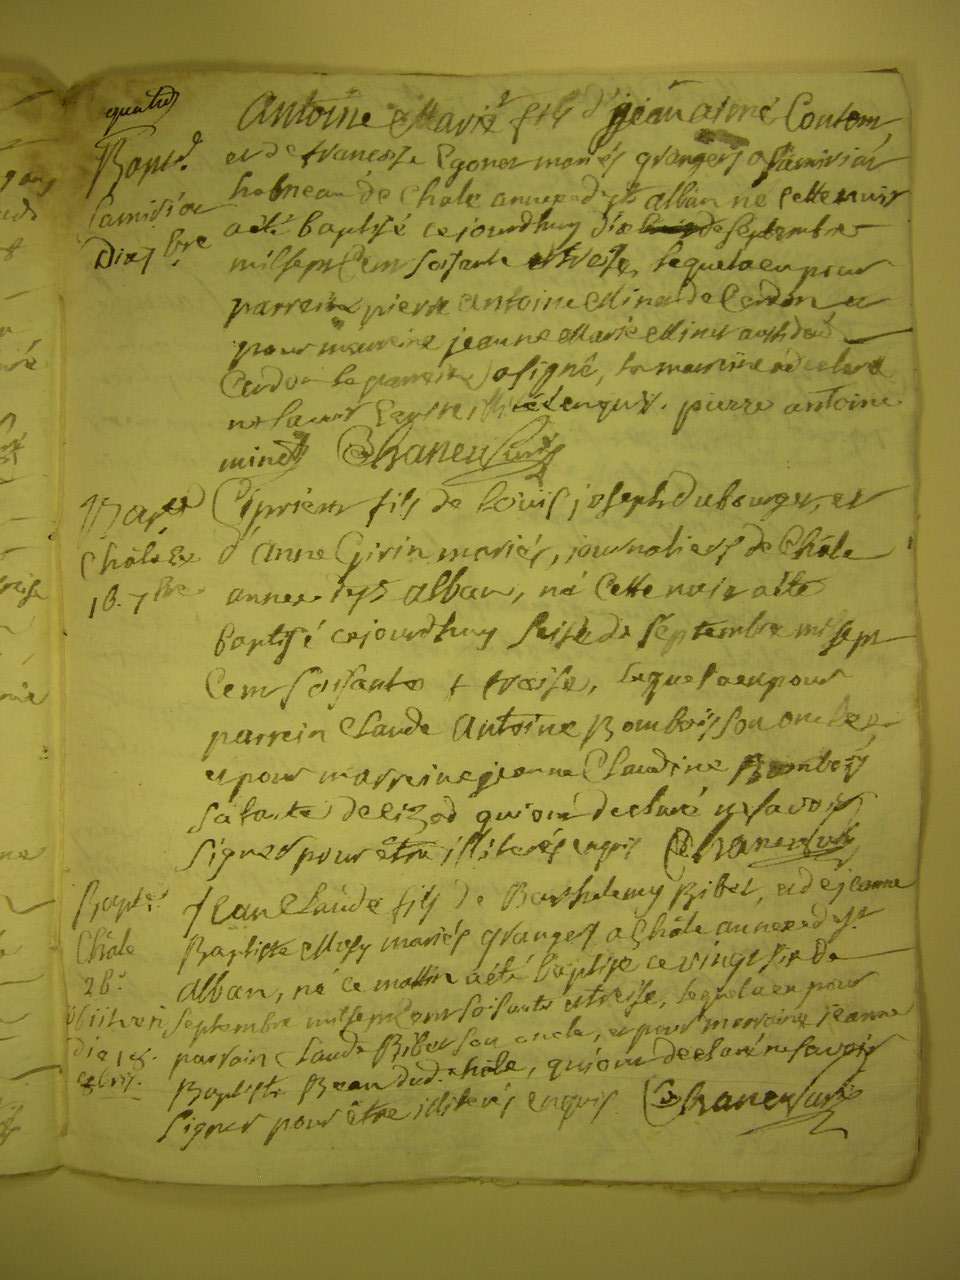 quatre
Bapt.
Lamiriou
Dix 7bre
Antoine Marie fils d'jean aimé Contem,
et de francoise Egonet mariés grangers a
hameau de Chole annexe d st alban né cette nuit
a été baptisé ce jourdhuy dix de septembre
mil sept Cent soisante et treise, lequel a eu pour
parrein pierre antoine Minet de Cerdon et
pour marreine jeanne Marie Minet aussi dud
Cerdon le parrein a signé, la marreine a declaré
ne savoir enquis. pierre antoine
minet Chanen curé
Bapt
Chole
16. 7bre
Ciprien fils de Louis joseph Dubourget, et
d'anne Girin mariés, journaliers de Chôle
annexe de st alban, né Cette nuit a été
baptisé ce jourdhuy seise de septembre mil sept
Cent soisante & treise, lequel a eu pour
parrein Claude Antoine Bombois son oncle
et pour marreine jeanne Claudine Bombois
sa tante qui ont declaré ne savoir
signer pour être illiterés enquis Chanen curé
Bapt.
Chôle
26.
obiit
Die 18.
8bris.
Jean Claude fils de Barthelemy Ribet, et de jeanne
Baptiste mariés grangers a Chôle annexe de st
alban, né ce mattin a été baptise ce vingt six de
septembre mil sept Cent soisante et treise, lequel a eu pour
parrain Claude Ribet son oncle, et pour marraine jeanne
Baptiste Bean dud. chôle, qui ont declaré ne savoir
signer pour être illiterés enquis Chanen curé